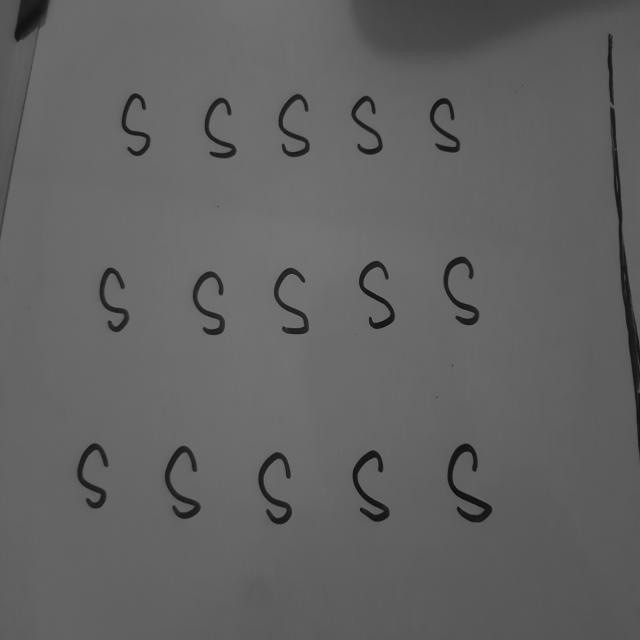 S S S S S
S S S S S
S S S S S